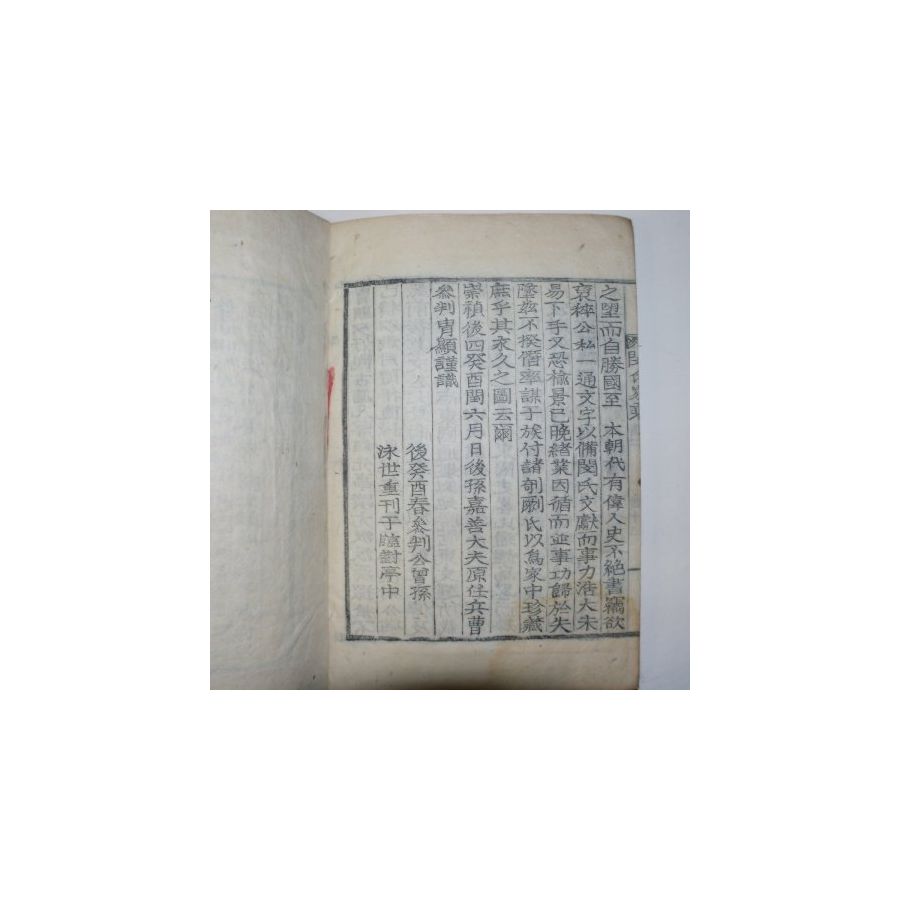 之望而自勝國至 本朝代有偉人史不絶書竊欲
裒稡公私一通文字以備閔氏文獻而事力浩大未
易下手又恐楡景已晩緖業因循而並事功歸於失
墜玆不揆僭率謀于族付諸剞劂氏以爲家中珍藏
庶乎其永久之圖云爾
崇禎後四癸酉閏六月日後孫嘉善大夫原任兵曹
參判胄顯謹識
後癸酉春參判公曾孫
泳世重刊于臨對亭中